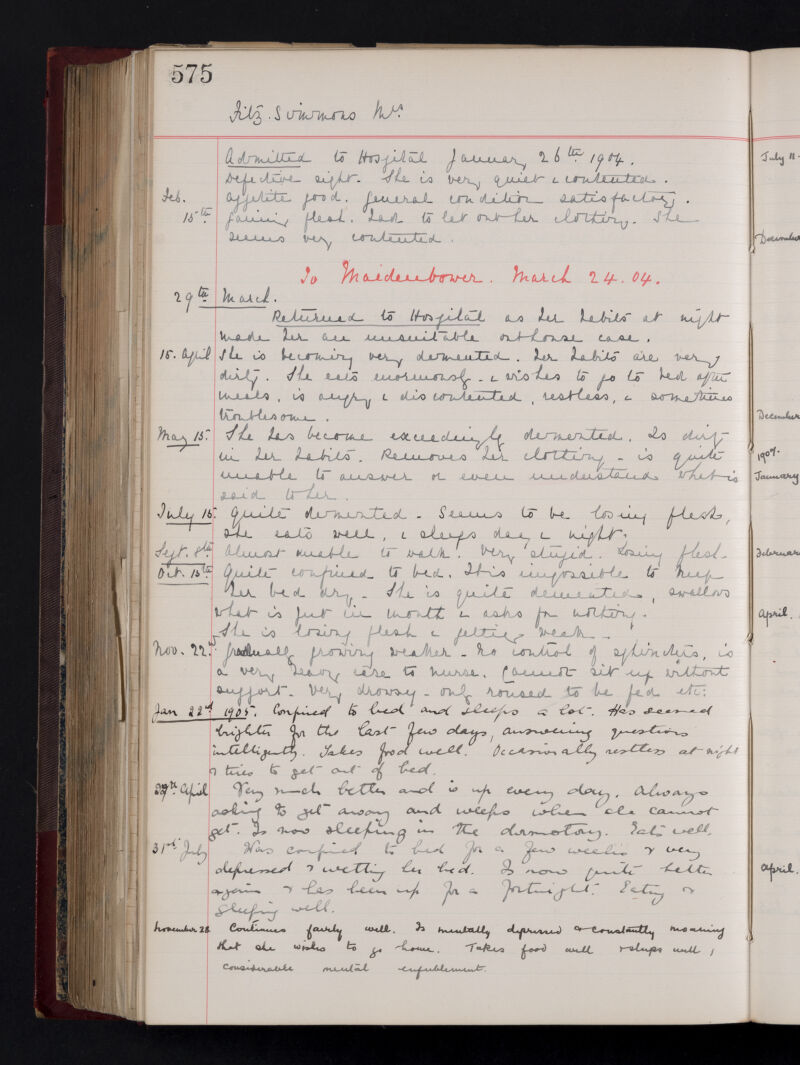 575
Fitz-Simmons Mrs
Admitted to Hospital January 26th 1904.
Defective sight. She is very quiet & contented.
Feb. appetite good. general condition satisfactory.
15th gaining flesh. Had to let out her clothing. She
seems very contented.
To Maidenbower. March 24.04.
29th March.
Returned to Hospital as her habits at night
made her an unsuitable outhouse case.
15. April She is becoming very demented. Her habits are very
dirty. She eats enormously - & wishes to go to bed after
meals, is angry & discontented, restless, & sometimes
troublesome.
May 15. She has become exceedingly demented. Is dirty
in her habits. Removes her clothing - is quite
unable to answer or even understand what is
said to her.
July 15. Quite demented - Seems to be losing flesh,
she eats well, & sleeps day & night.
Sept. 8th Almost unable to walk. Very stupid. Losing flesh.
Oct. 13th Quite confined to bed. It is impossible to keep
her bed dry - She is quite demented, swallows
what is put in mouth & asks for nothing.
She is losing flesh & getting weak -
Nov. 22nd gradually growing weaker - no control of sphincters, is
a very heavy case to nurse. Cannot sit up without
support. Very drowsy - only roused to be fed etc:
Jan 22d 1905. Confined to bed and sleeps a lot. Has seemed
brighter for the last few days, answering questions
intelligently. Takes food well. Occasionally restless at night
& tries to get out of bed.
April Very much better and is up every day. Always
asking to get away and weeps when she cannot
get. Is now sleeping in the dormitory. Eats well.
31st July Was confined to bed for a few weeks & very
depressed & wetting her bed. Is now quite better
again & has been up for a fortnight. Eating &
sleeping well.
November 28 Continues fairly well. Is mentally depressed & constantly moaning
that she wishes to go home. Takes food well & sleeps well,
considerable mental enfeeblement.
July 11.
December
December
1907.
January
February
April.
April.